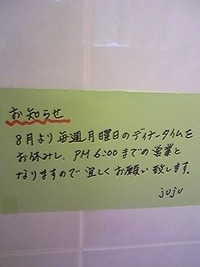 お知らせ
8月より毎週月曜日のディナータイムを
お休みし、PM 6:00までの営業と
なりますので宜しくお願い致します。
juju